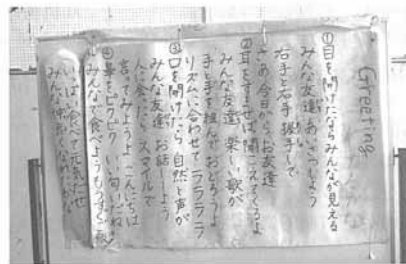 Greeting
①目を開けたならみんなが見える
みんな友達 あいさつしよう
右手と右手 握手して
さあ今日から お友達
②耳をすませば聞こえてくるよ
みんな友達 楽しい歌が
手と手を組んで おどろうよ
リズムに合わせて ラララララ
③口を開けたら 自然と声が
みんな友達 お話ししよう
人に会ったら スマイルで
言ってみようよ こんにちは
④鼻をピクピク いい匂いだね
みんなで食べよう もうすぐ
いっぱい食べて 元気だせ
みんな仲良く